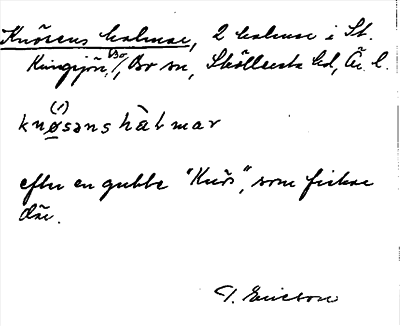 Knösens holmar, 2 holmar i St.
Kungsjön, Bo sn, Sköllersta hd, Ä. l.
(1)
knøsəns hàlmar
efter en gubbe "Knös", som fiskar
där.
T. Ericson